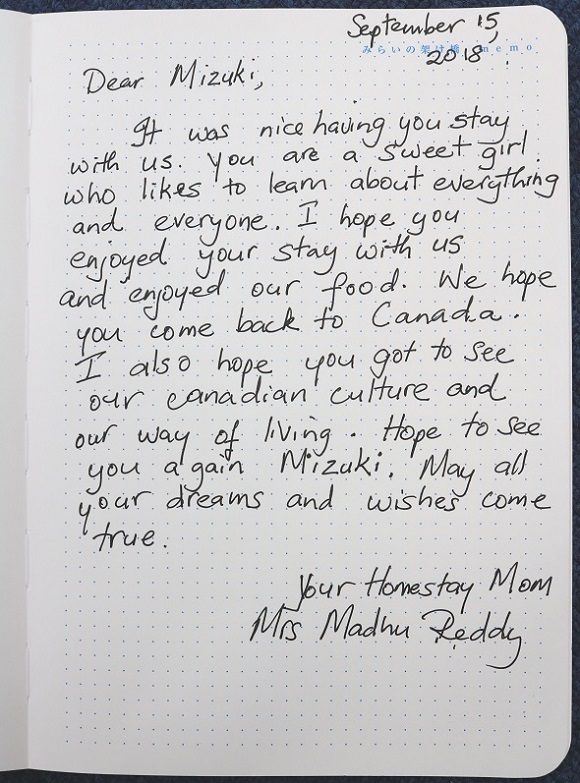 September 15,
みらいの架け橋 memo
2018
Dear Mizuki,
It was nice having you stay
with us. You are a sweet girl
who likes to learn about everything
and everyone. I hope you
enjoyed your stay with us
and enjoyed our food. We hope
you come back to Canada.
I also hope you got to see
our canadian culture and
our way of living. Hope to see
you again Mizuki. May all
your dreams and wishes come
true.
Your Homestay Mom
Mrs Madhu Reddy